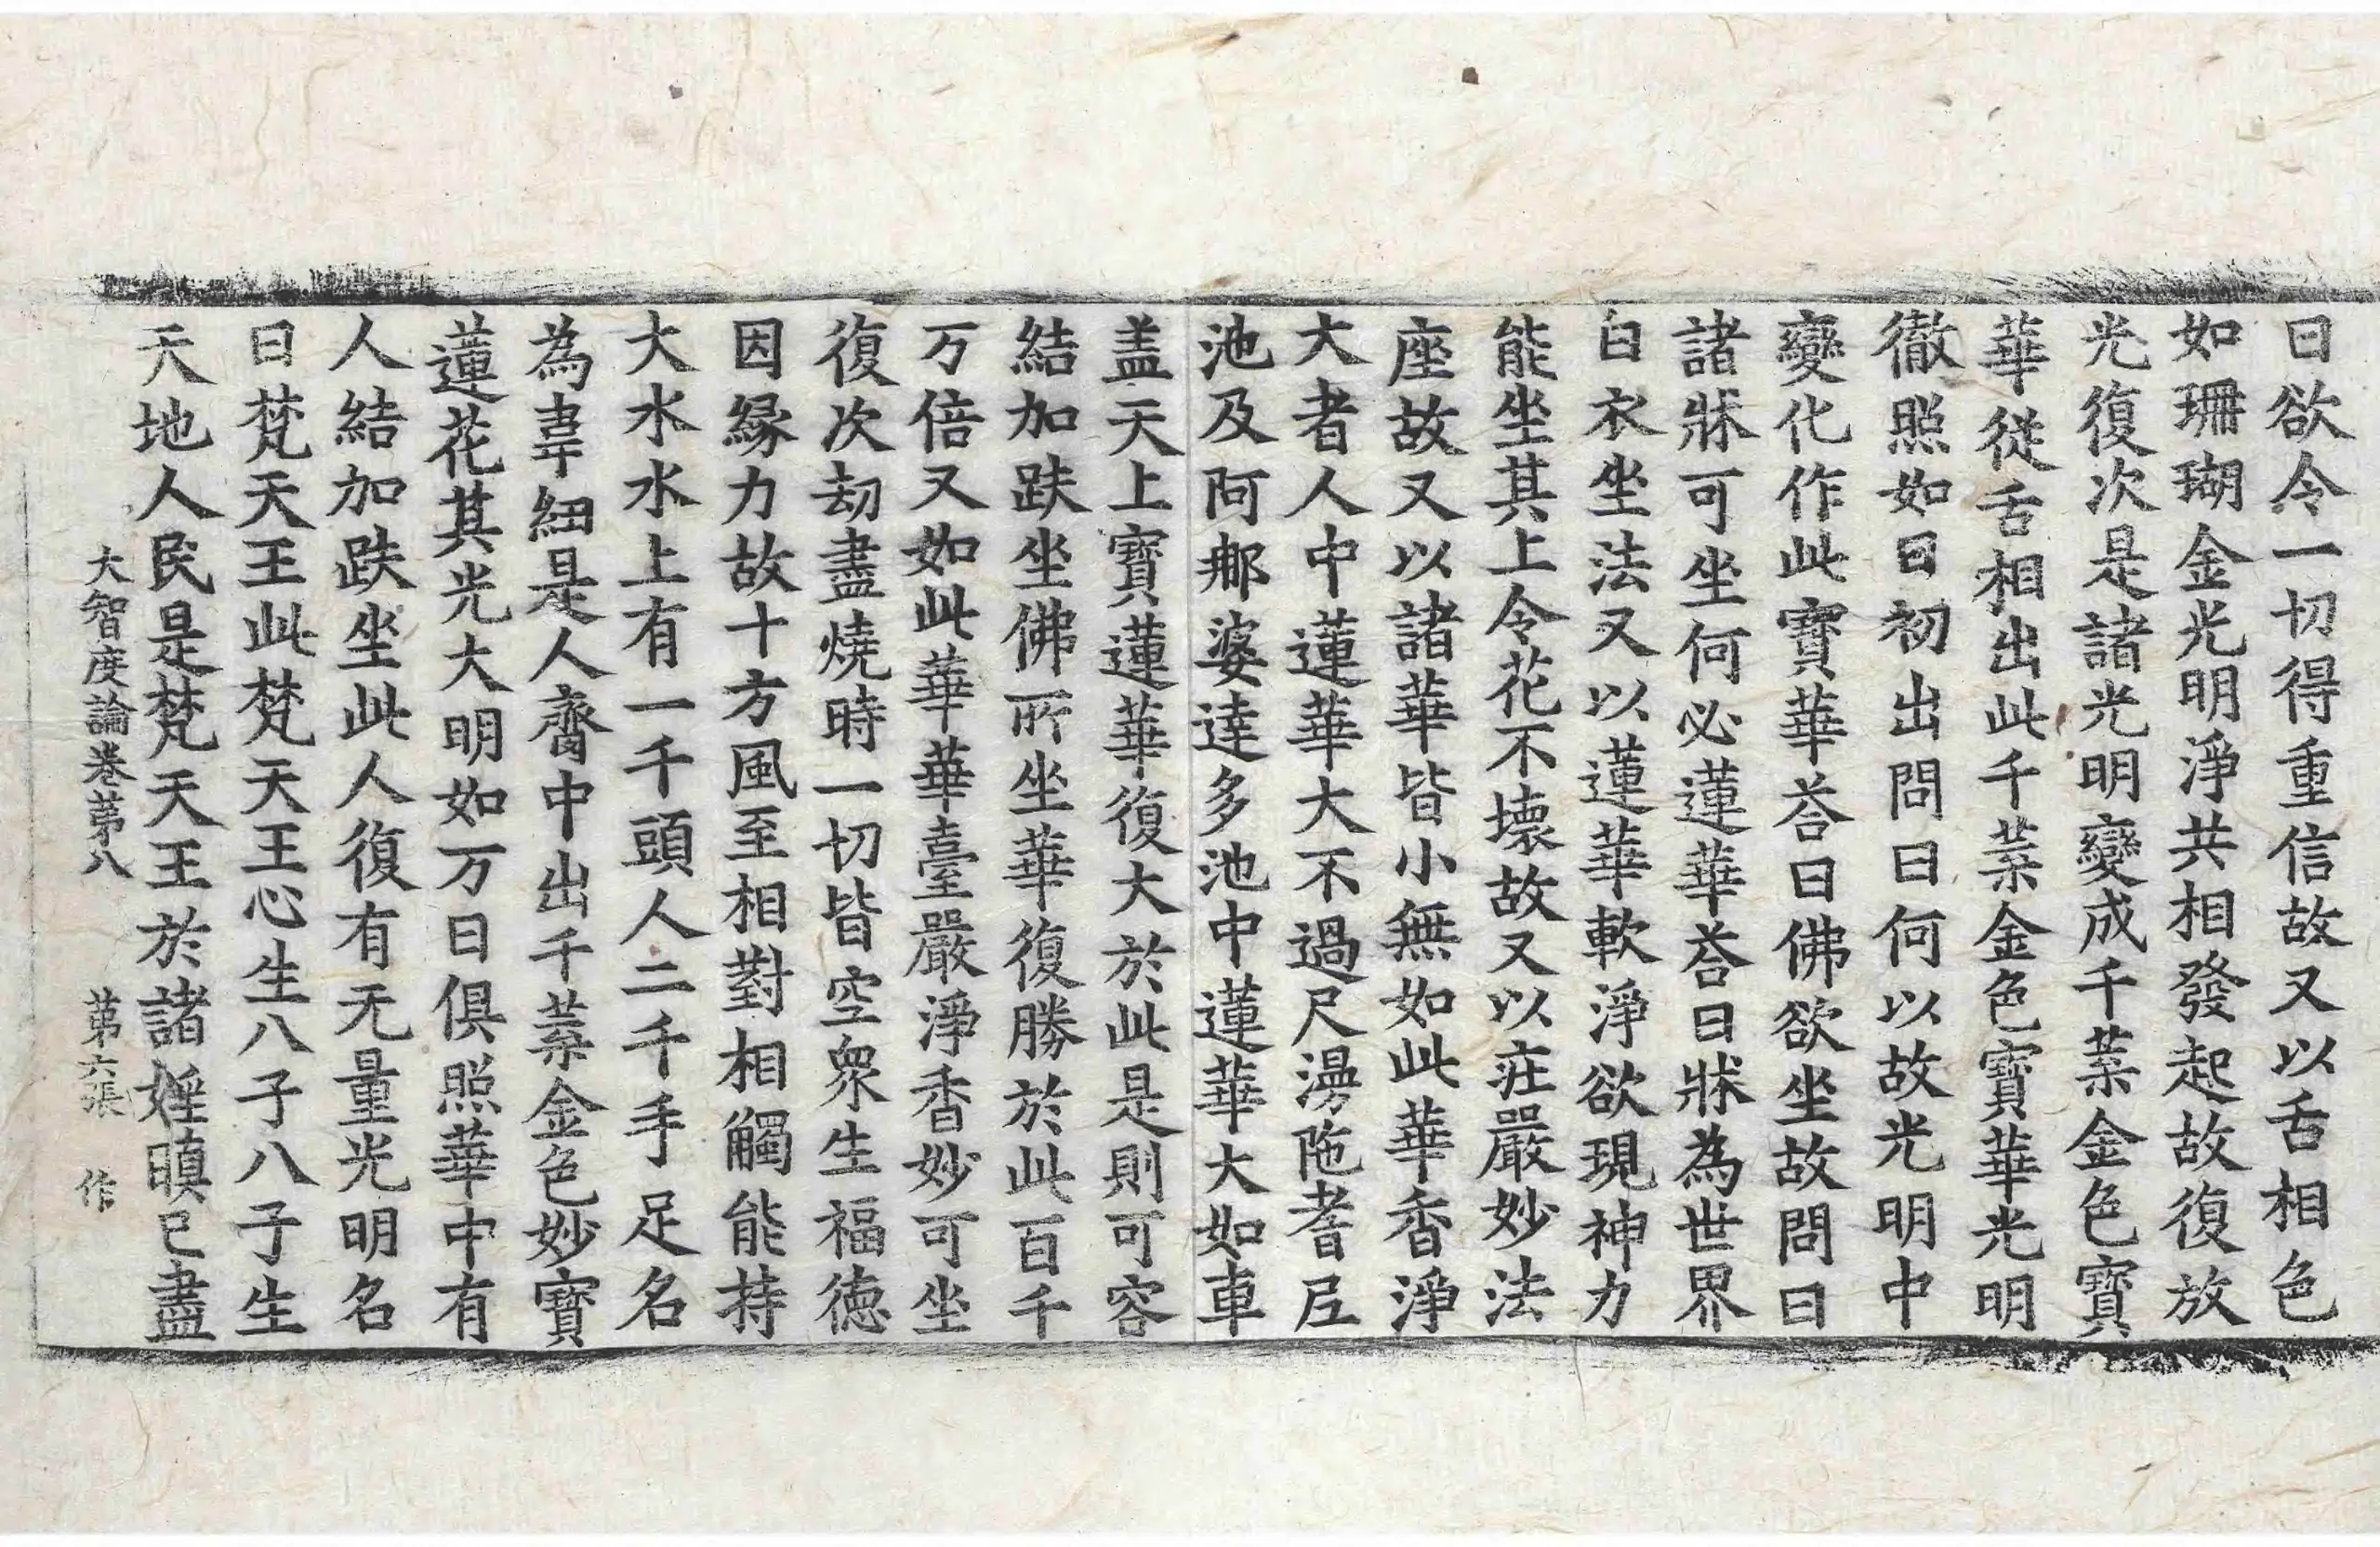 曰欲令一切得重信故又以舌相色
如珊瑚金光明淨共相發起故復放
光復次是諸光明變成千葉金色寶
華從舌相出此千葉金色寶華光明
徹照如日初出問曰何以故光明中
變化作此寶華荅曰佛欲坐故問曰
諸牀可坐何必蓮華荅曰牀為世界
白衣坐法又以蓮華軟淨欲現神力
能坐其上令花不壞故又以莊嚴妙法
座故又以諸華皆小無如此華香淨
大者人中蓮華大不過尺漫陁耆尼
池及阿那婆達多池中蓮華大如車
盖天上寶蓮華復大於此是則可容
結加趺坐佛所坐華復勝於此百千
万倍又如此華華臺嚴淨香妙可坐
復次劫盡燒時一切皆空衆生福德
因緣力故十方風至相對相觸能持
大水水上有一千頭人二千手足名
為韋紐是人齊中出千葉金色妙寶
蓮花其光大明如万日俱照華中有
人結加趺坐此人復有无量光明名
曰梵天王此梵天王心生八子八子生
天地人民是梵天王於諸婬瞋已盡
大智度論卷第八　第六張　作